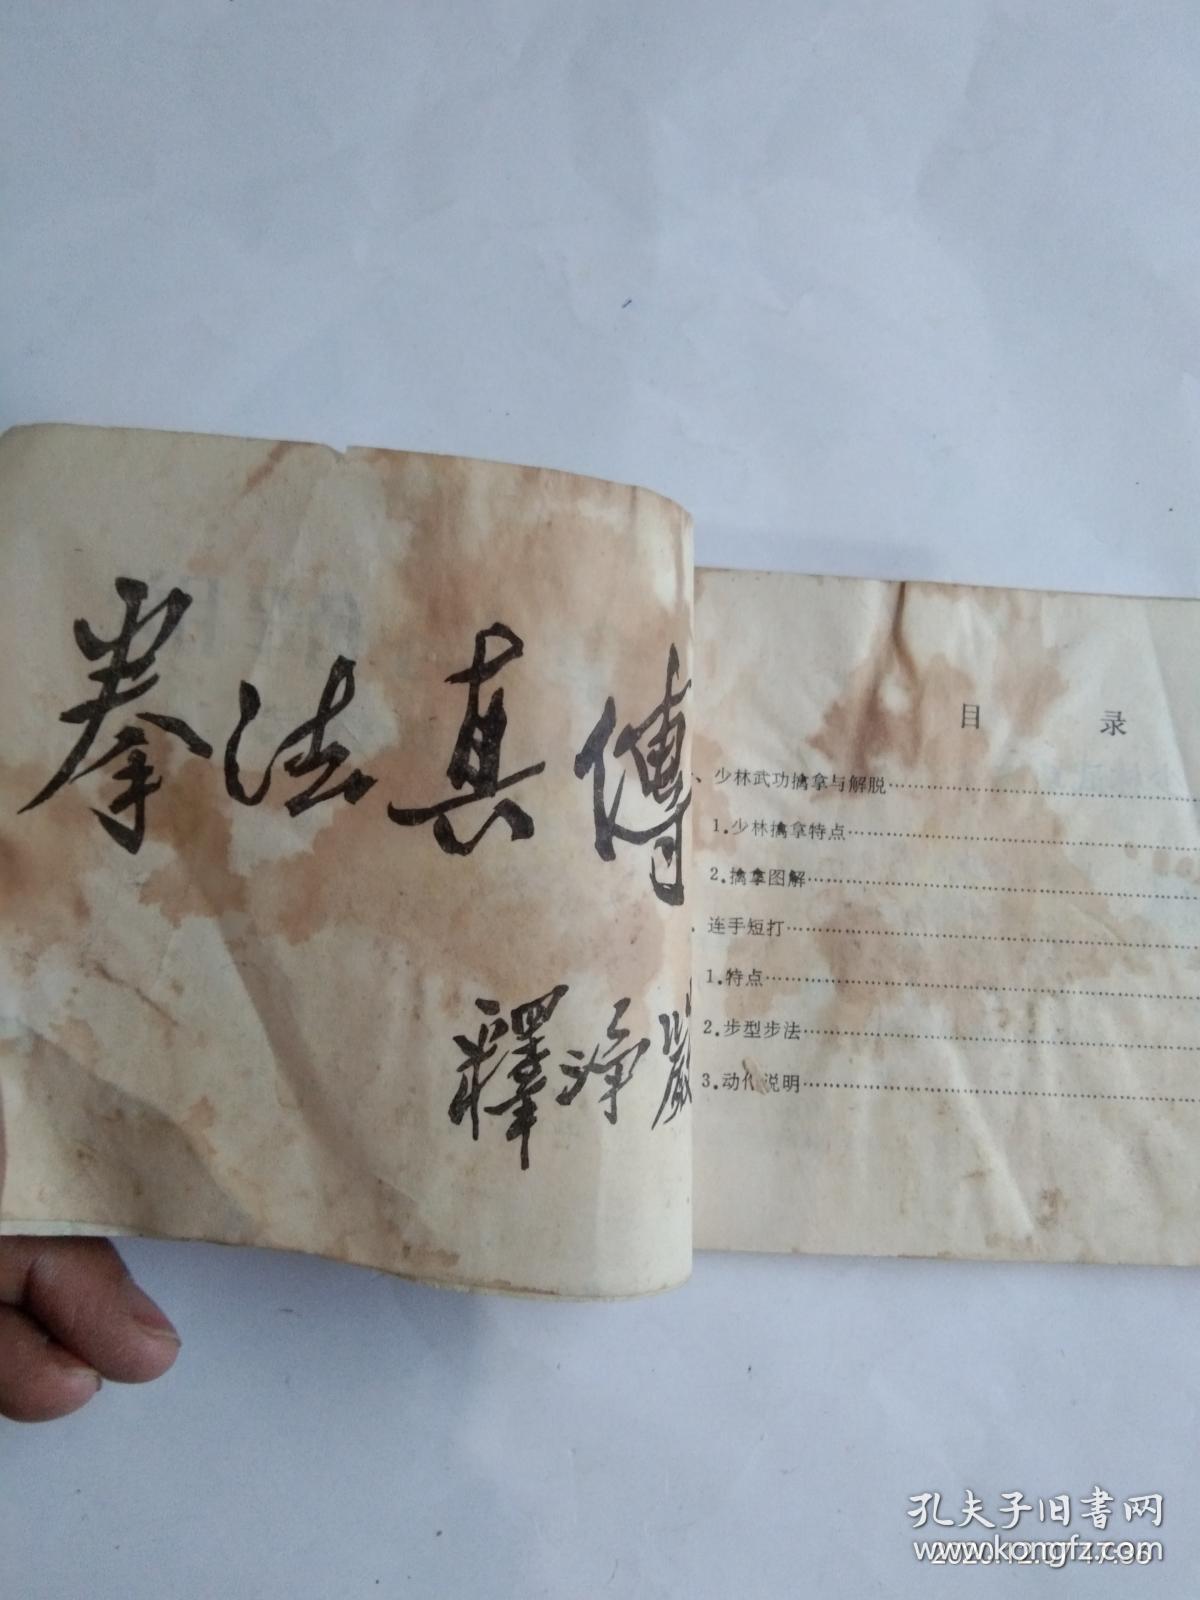 拳法真傳
釋淨嚴
目 录
、少林武功擒拿与解脱
1.少林擒拿特点
2.擒拿图解
、连手短打
1.特点
2.步型步法
3.动作说明
孔夫子旧书网
www.kongfz.com